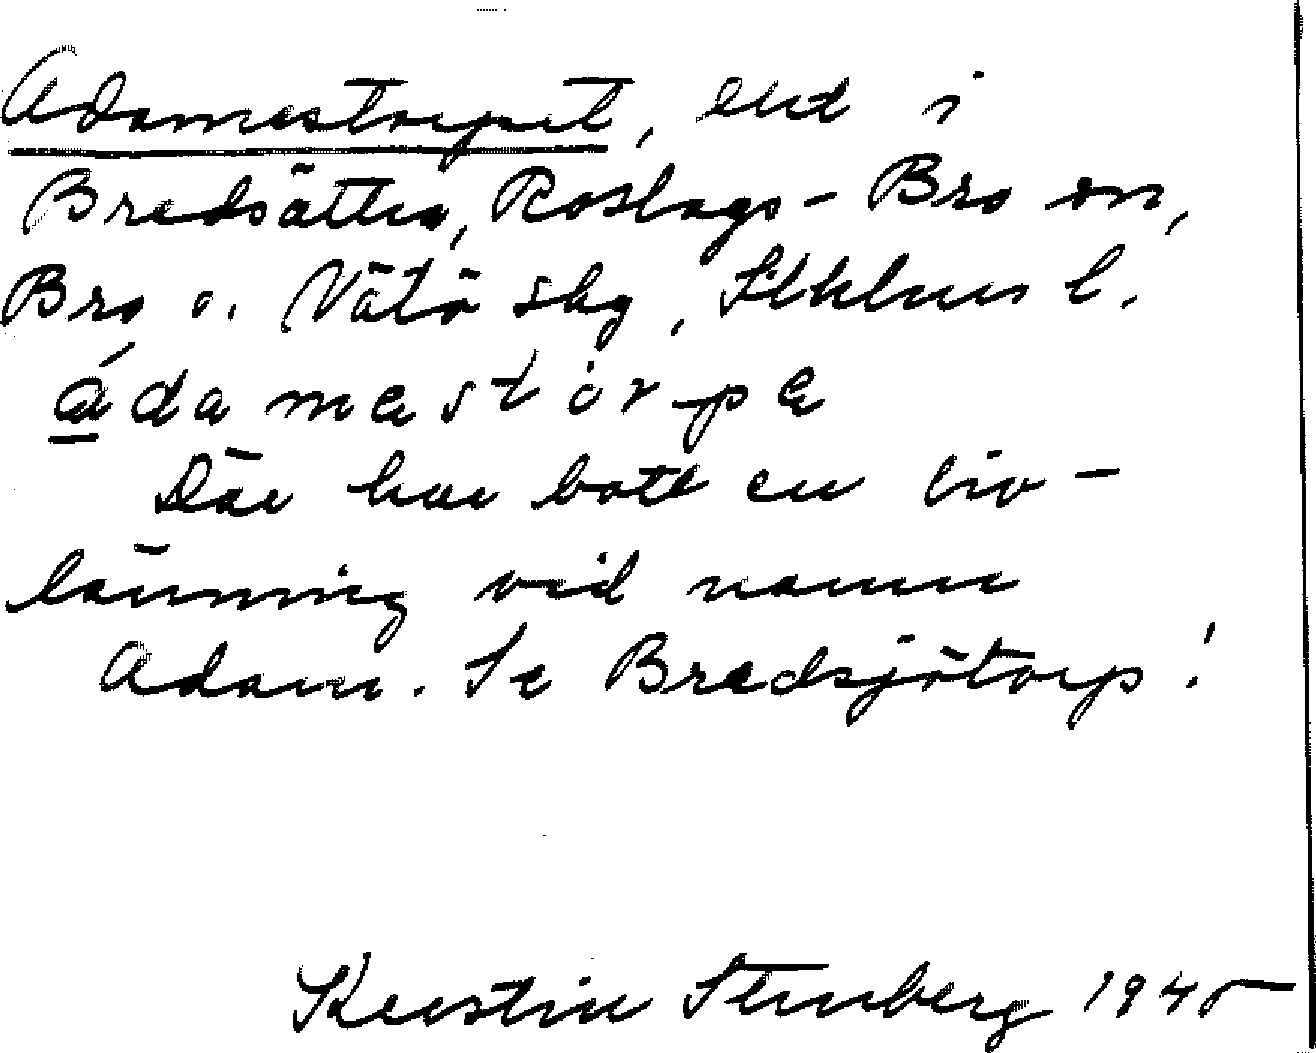 Adamestorpet, ent i
Bredsätra, Roslags-Bro sn,
Bro o. Vätö skg, Sthlms l.
ádamestòrpe
Där har bott en liv-
länning vid namn
Adam. Se Bredsjötorp!
Kerstin Stenberg 1945